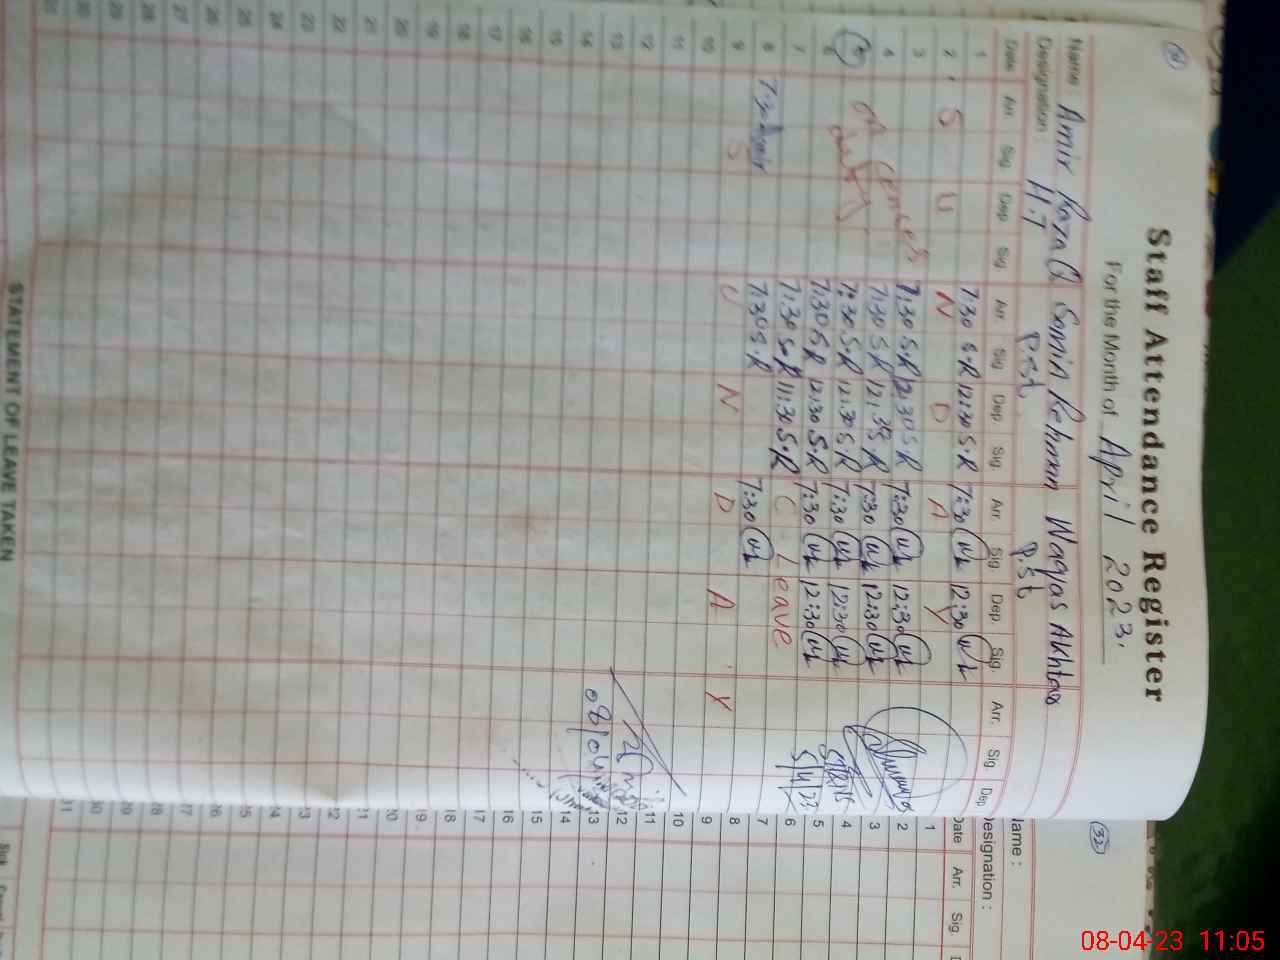 Staff Attendance Register
For the Month of April 2023.
Name : Amir Raza Q Samin Rehman Waqas Akhtar
Designation : H.T P.st P.st
Date Arr. Sig. Dep Sig. Arr. Sig. Dep Sig. Arr. Sig. Dep. Sig. Arr. Sig. Dep
1 7:30 S.R 12:30 S.R 7:30 12:30
2 S U N D A Y
3 7:30 S.R 12:30 S R 7:30 12:30
4 7:30 S R 7:30 12:30
5 7:30 S.R 12:30 S R 7:30 12:30
6 7:30 S R 12:30 S.R 7:30 12:30
on census duty
7 7:30 S.R 11:30 S.R C Leave
5/4/23
8 7:30 Amir 7:30 S.R 7:30
9 S U N D A Y
10
11
12
13
14
15
16
17
18
19
20
21
22
23
24
25
26
27
28
29
30
31
STATEMENT OF LEAVE TAKEN
31
32
Name :
Designation :
Date Arr. Sig.
1
2
3
4
5
6
7
8
9
10
11
12
13
14
15
16
17
18
19
20
21
22
23
24
25
26
27
28
29
30
31
08-04-23 11:05